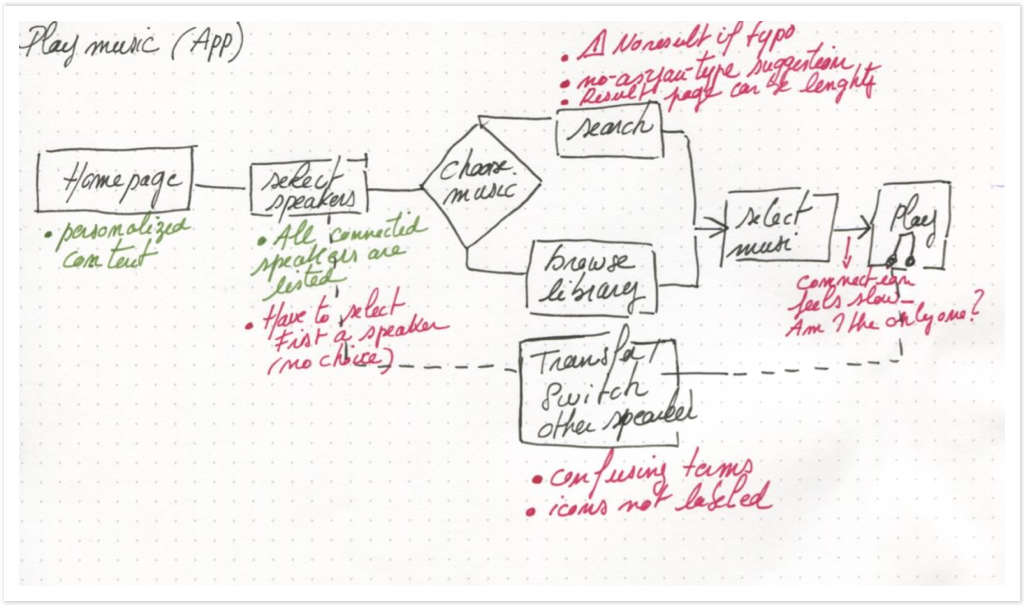 Play music (App)
• ⚠ No result if typo
• no-as-you-type suggestion
• Result page can be lenghty
search
Homepage
select
speakers
choose
music
• personalized
content
• All connected
speakers are
listed
• Have to select
First a speaker
(no choice)
browse
library
select
music
Play
connection
feels slow
Am I the only one?
Transfer /
Switch
other speaker
• confusing terms
• icons not labeled